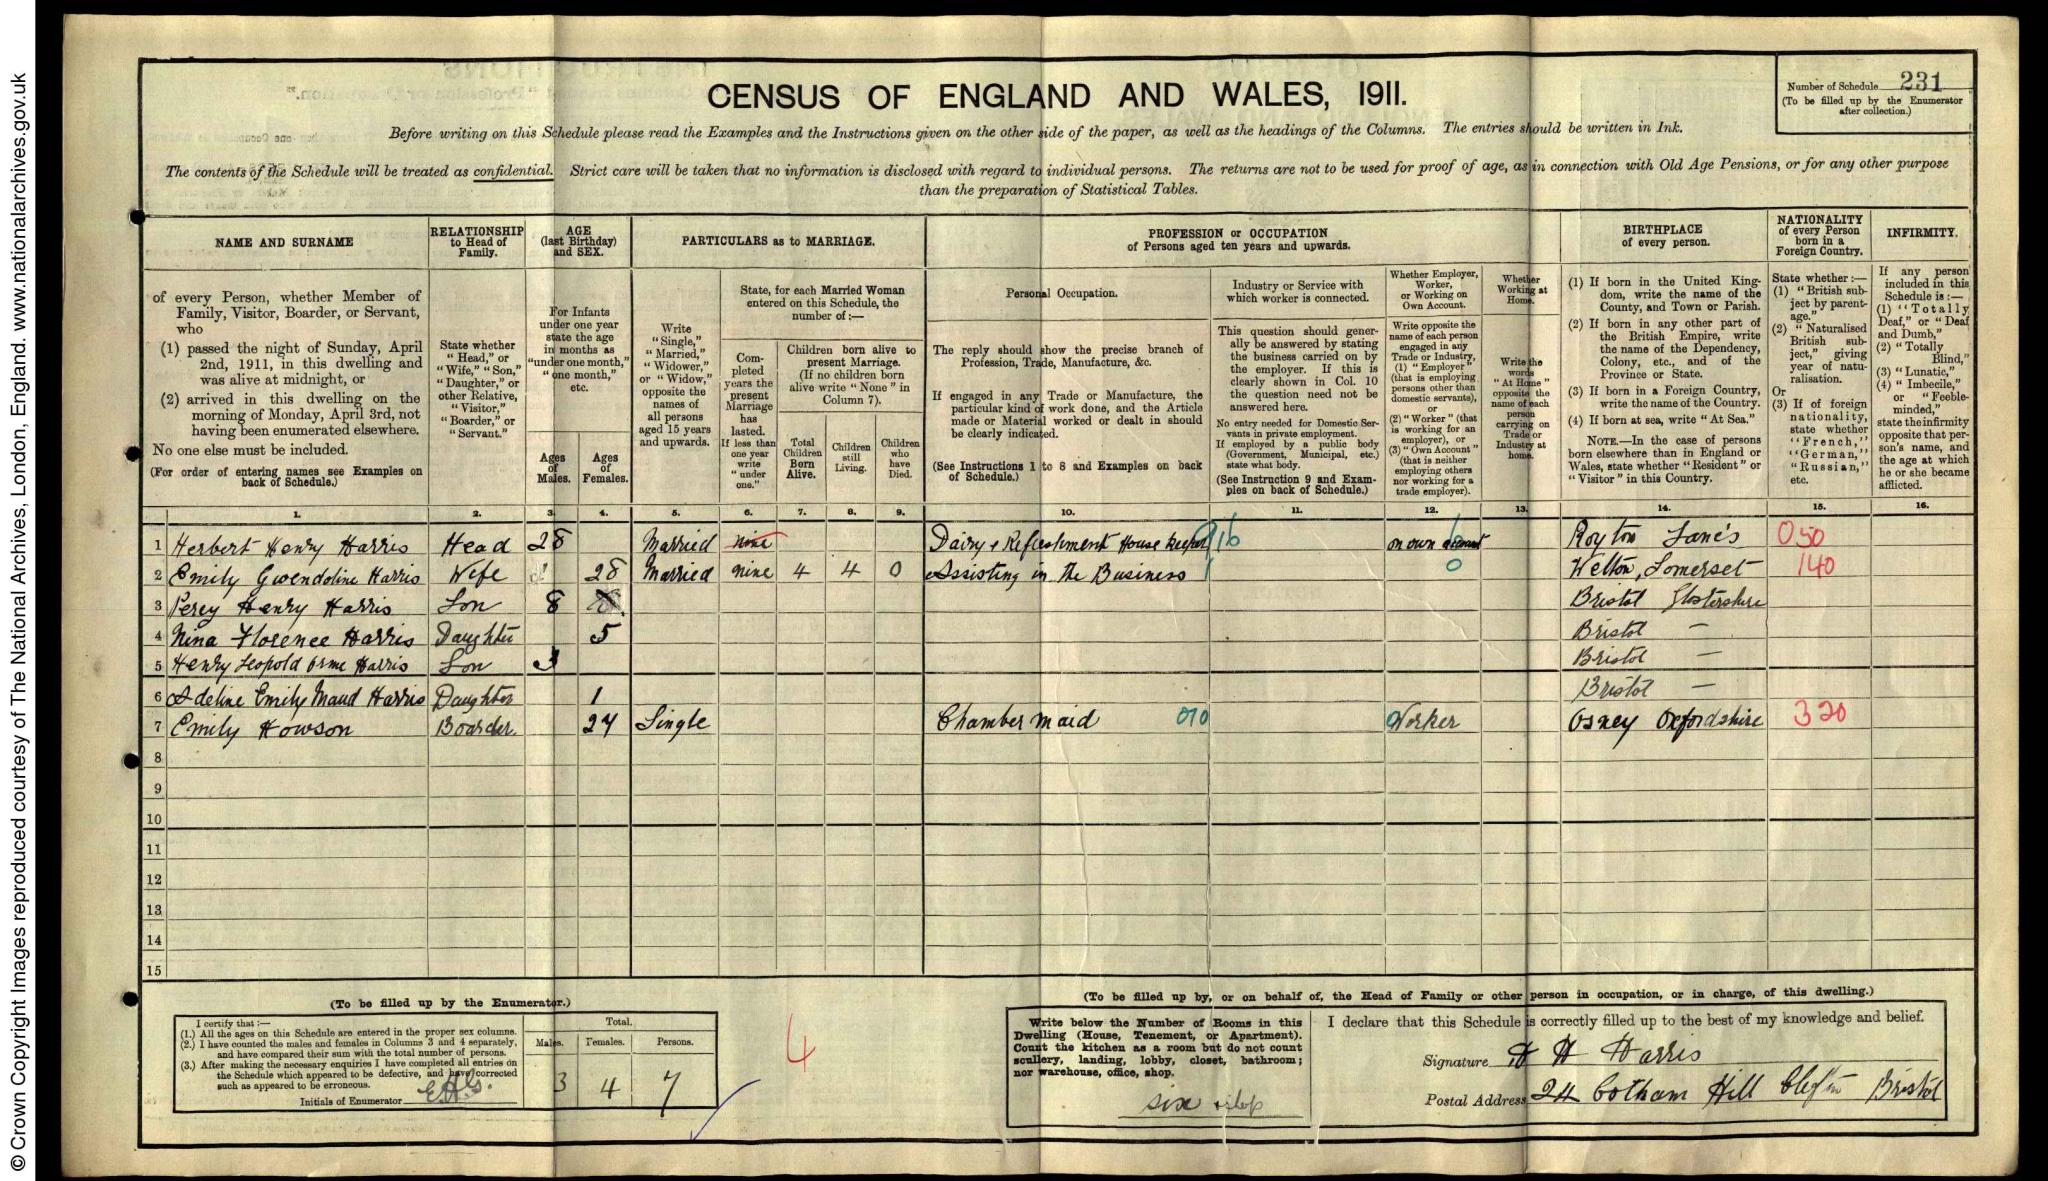 © Crown Copyright Images reproduced courtesy of The National Archives, London, England. www.nationalarchives.gov.uk
CENSUS OF ENGLAND AND WALES, 1911.
Number of Schedule 231
(To be filled up by the Enumerator
after collection.)
Before writing on this Schedule please read the Examples and the Instructions given on the other side of the paper, as well as the headings of the Columns. The entries should be written in Ink.
The contents of the Schedule will be treated as confidential. Strict care will be taken that no information is disclosed with regard to individual persons. The returns are not to be used for proof of age, as in connection with Old Age Pensions, or for any other purpose
than the preparation of Statistical Tables.
NAME AND SURNAME
of every Person, whether Member of
Family, Visitor, Boarder, or Servant,
who
(1) passed the night of Sunday, April
2nd, 1911, in this dwelling and
was alive at midnight, or
(2) arrived in this dwelling on the
morning of Monday, April 3rd, not
having been enumerated elsewhere.
No one else must be included.
(For order of entering names see Examples on
back of Schedule.)
RELATIONSHIP
to Head of
Family.
State whether
"Head," or
"Wife," "Son,"
"Daughter," or
other Relative,
"Visitor,"
"Boarder," or
"Servant."
AGE
(last Birthday)
and SEX.
For Infants
under one year
state the age
in months as
"under one month,"
"one month,"
etc.
Ages
of
Males.
Ages
of
Females.
PARTICULARS as to MARRIAGE.
Write
"Single,"
"Married,"
"Widower,"
or "Widow,"
opposite the
names of
all persons
aged 15 years
and upwards.
State, for each Married Woman
entered on this Schedule, the
number of :—
Com-
pleted
years the
present
Marriage
has
lasted.
If less than
one year
write
"under
one."
Children born alive to
present Marriage.
(If no children born
alive write "None" in
Column 7).
Total
Children
Born
Alive.
Children
still
Living.
Children
who
have
Died.
PROFESSION or OCCUPATION
of Persons aged ten years and upwards.
Personal Occupation.
The reply should show the precise branch of
Profession, Trade, Manufacture, &c.
If engaged in any Trade or Manufacture, the
particular kind of work done, and the Article
made or Material worked or dealt in should
be clearly indicated.
(See Instructions 1 to 8 and Examples on back
of Schedule.)
Industry or Service with
which worker is connected.
This question should gener-
ally be answered by stating
the business carried on by
the employer. If this is
clearly shown in Col. 10
the question need not be
answered here.
No entry needed for Domestic Ser-
vants in private employment.
If employed by a public body
(Government, Municipal, etc.)
state what body.
(See Instruction 9 and Exam-
ples on back of Schedule.)
Whether Employer,
Worker,
or Working on
Own Account.
Write opposite the
name of each person
engaged in any
Trade or Industry,
(1) "Employer"
(that is employing
persons other than
domestic servants),
or
(2) "Worker" (that
is working for an
employer), or
(3) "Own Account"
(that is neither
employing others
nor working for a
trade employer).
Whether
Working at
Home.
Write the
words
"At Home"
opposite the
name of each
person
carrying on
Trade or
Industry at
home.
BIRTHPLACE
of every person.
(1) If born in the United King-
dom, write the name of the
County, and Town or Parish.
(2) If born in any other part of
the British Empire, write
the name of the Dependency,
Colony, etc., and of the
Province or State.
(3) If born in a Foreign Country,
write the name of the Country.
(4) If born at sea, write "At Sea."
NOTE.—In the case of persons
born elsewhere than in England or
Wales, state whether "Resident" or
"Visitor" in this Country.
NATIONALITY
of every Person
born in a
Foreign Country.
State whether :—
(1) "British sub-
ject by parent-
age."
(2) "Naturalised
British sub-
ject," giving
year of natu-
ralisation.
Or
(3) If of foreign
nationality,
state whether
"French,"
"German,"
"Russian,"
etc.
INFIRMITY.
If any person
included in this
Schedule is :—
(1) "Totally
Deaf," or "Deaf
and Dumb,"
(2) "Totally
Blind,"
(3) "Lunatic,"
(4) "Imbecile,"
or "Feeble-
minded,"
state the infirmity
opposite that per-
son's name, and
the age at which
he or she became
afflicted.
1. 2. 3. 4. 5. 6. 7. 8. 9. 10. 11. 12. 13. 14. 15. 16.
1 Herbert Henry Harris Head 28 Married nine Dairy & Refreshment House Keeper 916 on own account 6 Royton Lanc's 050
2 Emily Gwendoline Harris Wife 28 Married nine 4 4 0 Assisting in the Business 1 0 Welton, Somerset 140
3 Percy Henry Harris Son 8 Bristol Glostershire
4 Nina Florence Harris Daughter 5 Bristol —
5 Henry Leopold Orme Harris Son 3 Bristol —
6 Adeline Emily Maud Harris Daughter 1 Bristol —
7 Emily Howson Boarder 27 Single Chamber maid 010 Worker Osney Oxfordshire 320
8
9
10
11
12
13
14
15
(To be filled up by the Enumerator.)
I certify that :—
(1.) All the ages on this Schedule are entered in the proper sex columns.
(2.) I have counted the males and females in Columns 3 and 4 separately,
and have compared their sum with the total number of persons.
(3.) After making the necessary enquiries I have completed all entries on
the Schedule which appeared to be defective, and have corrected
such as appeared to be erroneous.
Initials of Enumerator
Total.
Males. Females. Persons.
3 4 7
4
(To be filled up by, or on behalf of, the Head of Family or other person in occupation, or in charge, of this dwelling.)
Write below the Number of Rooms in this
Dwelling (House, Tenement, or Apartment).
Count the kitchen as a room but do not count
scullery, landing, lobby, closet, bathroom;
nor warehouse, office, shop.
six
I declare that this Schedule is correctly filled up to the best of my knowledge and belief.
Signature H H Harris
Postal Address 24 Cotham Hill Clifton Bristol